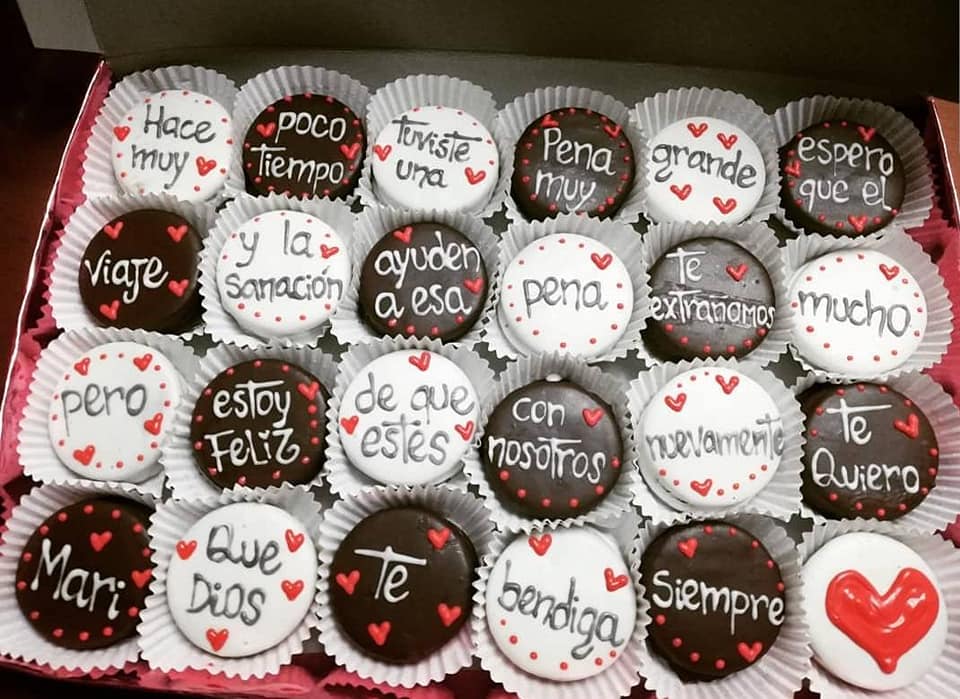 Hace
muy
poco
Tiempo
Tuviste
una
Pena
muy
grande
espero
que el
viaje
y la
sanación
ayuden
a esa
pena
Te
extrañamos
mucho
pero
estoy
Feliz
de que
estés
con
nosotros
nuevamente
Te
Quiero
Mari
Que
Dios
Te
bendiga
siempre